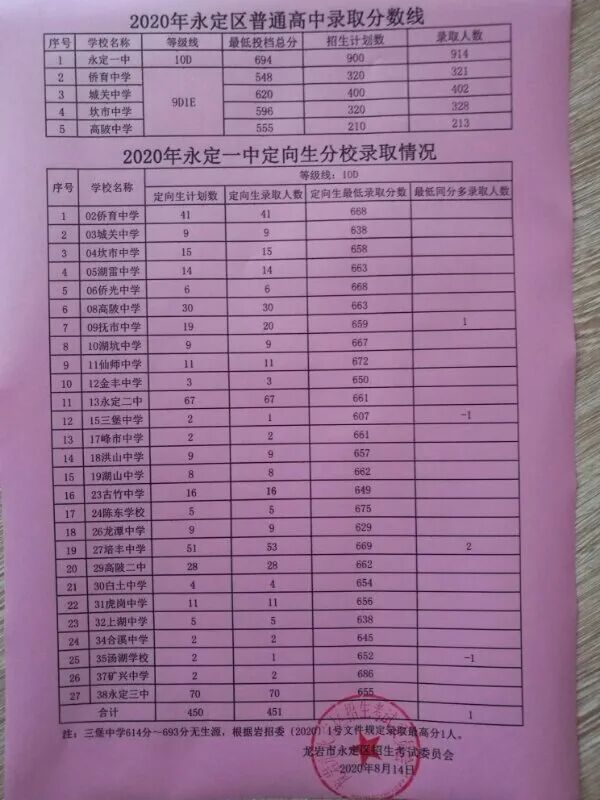 2020年永定区普通高中录取分数线
序号 学校名称 等级线 最低投档总分 招生计划数 录取人数
1 永定一中 10D 694 900 914
2 侨育中学 9D1E 548 320 321
3 城关中学 620 400 402
4 坎市中学 596 320 328
5 高陂中学 555 210 213
2020年永定一中定向生分校录取情况
序号 学校名称 等级线：10D
定向生计划数 定向生录取人数 定向生最低录取分数 最低同分多录取人数
1 02侨育中学 41 41 668
2 03城关中学 9 9 638
3 04坎市中学 15 15 658
4 05湖雷中学 14 14 663
5 06侨光中学 6 6 668
6 08高陂中学 30 30 663
7 09抚市中学 19 20 659 1
8 10湖坑中学 9 9 667
9 11仙师中学 11 11 672
10 12金丰中学 3 3 650
11 13永定二中 67 67 661
12 15三堡中学 2 1 607 -1
13 17峰市中学 2 2 661
14 18洪山中学 9 9 657
15 19湖山中学 8 8 662
16 23古竹中学 16 16 649
17 24陈东学校 5 5 675
18 26龙潭中学 9 9 629
19 27培丰中学 51 53 669 2
20 29高陂二中 28 28 662
21 30白土中学 4 4 654
22 31虎岗中学 11 11 656
23 32上湖中学 5 5 638
24 34合溪中学 2 2 645
25 35汤湖学校 2 1 652 -1
26 37矿兴中学 2 2 686
27 38永定三中 70 70 655
合计 450 451 1
注：三堡中学614分~693分无生源，根据岩招委（2020）1号文件规定录取最高分1人。
龙岩市永定区招生考试委员会
2020年8月14日